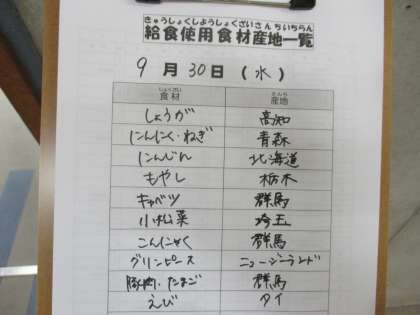 きゅうしょくしようしょくざいさんちいちらん
給食使用食材産地一覧
9月30日(水)
しょくざい さんち
食材 産地
しょうが 高知
にんにく・ねぎ 青森
にんじん 北海道
もやし 栃木
キャベツ 群馬
小松菜 埼玉
こんにゃく 群馬
グリンピース ニュージーランド
豚肉・たまご 群馬
えび タイ